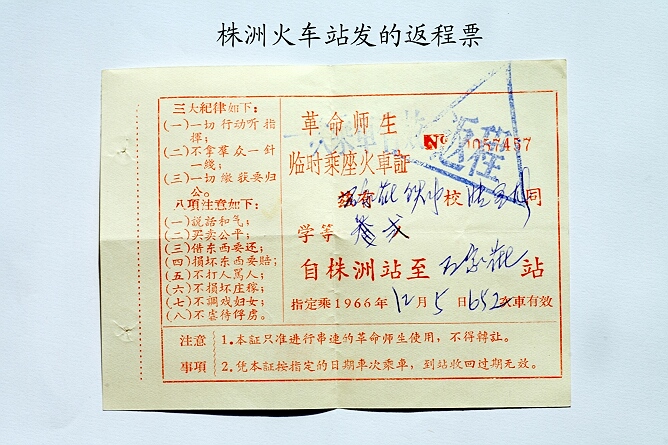 株洲火车站发的返程票
三大纪律如下:
(一)一切行动听指
揮;
(二)不拿羣众一針
一綫;
(三)一切缴获要归
公。
八項注意如下:
(一)説話和气;
(二)买卖公平;
(三)借东西要还;
(四)損坏东西要賠;
(五)不打人駡人;
(六)不損坏庄稼;
(七)不調戏妇女;
(八)不虐待俘虏。
革命师生
临时乘座火車証
返程
校 同
学等
自株洲站至 石家庄 站
指定乘1966年12月5日652次車有效
注意
事項
1.本証只准进行串連的革命师生使用,不得轉让。
2.凭本証按指定的日期車次乘車,到站收回过期无效。